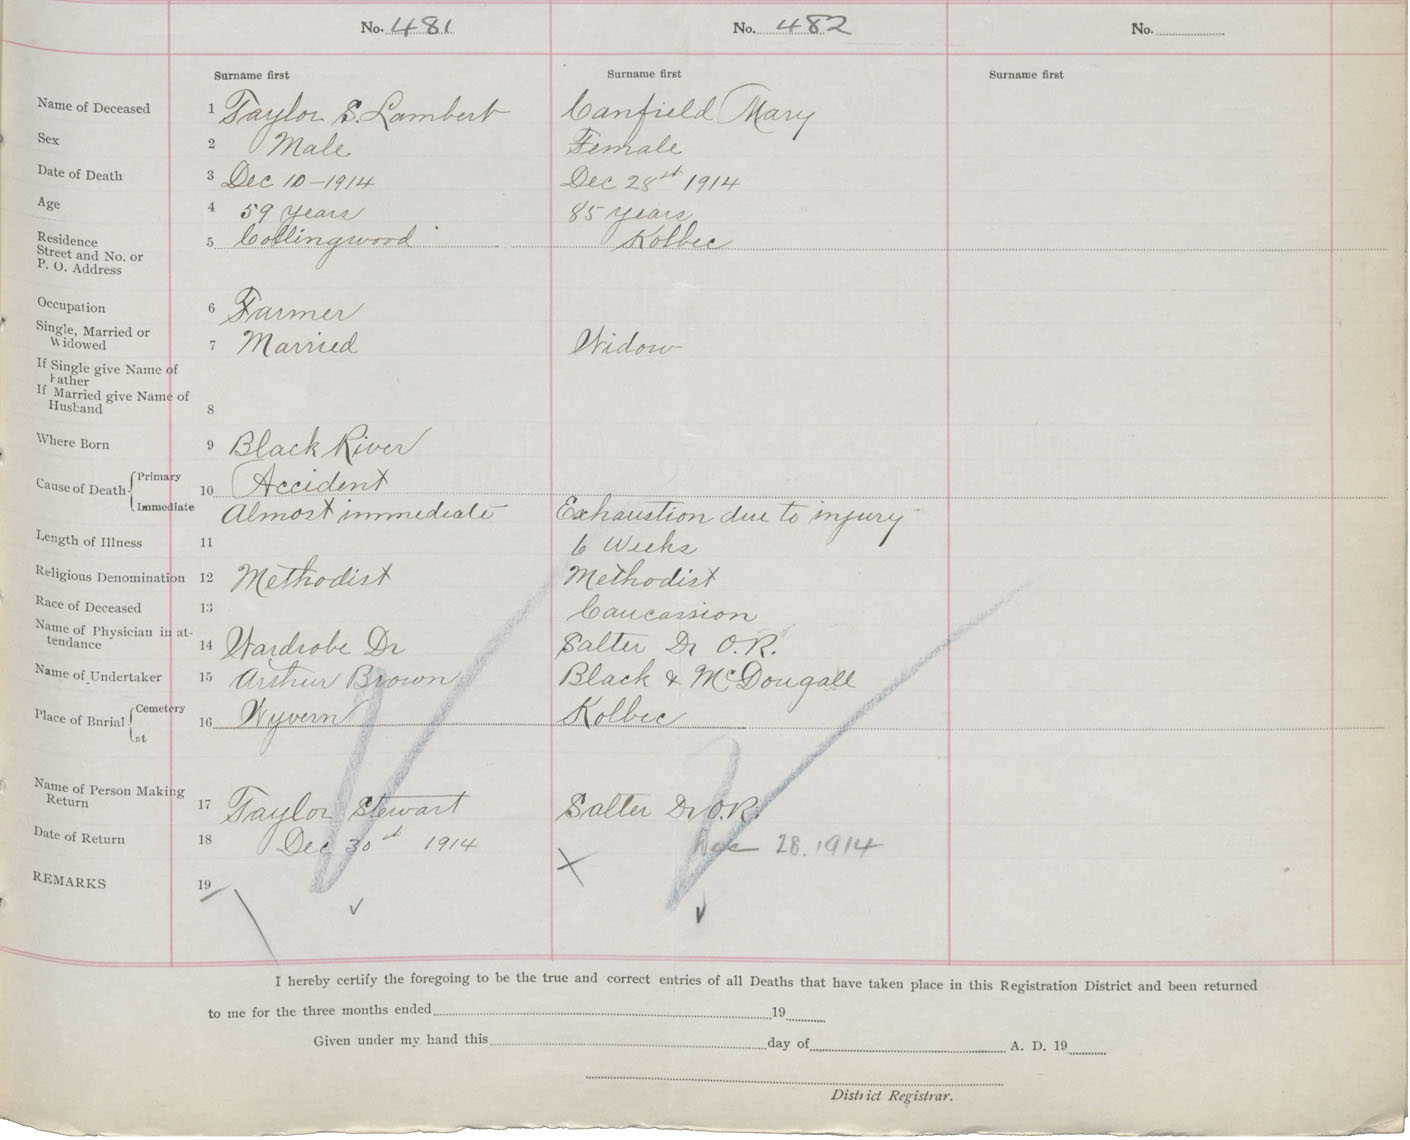 No. 481 No. 482 No.
Surname first Surname first Surname first
Name of Deceased 1 Taylor S. Lambert Canfield Mary
Sex 2 Male Female
Date of Death 3 Dec 10-1914 Dec 28th 1914
Age 4 59 years 85 years
Residence
Street and No. or
P. O. Address 5 Collingwood Kolbec
Occupation 6 Farmer
Single, Married or
Widowed 7 Married Widow
If Single give Name of
Father
If Married give Name of
Husband 8
Where Born 9 Black River
Cause of Death Primary 10 Accident
Immediate Almost immediate Exhaustion due to injury
Length of Illness 11 6 Weeks
Religious Denomination 12 Methodist Methodist
Race of Deceased 13 Caucassion
Name of Physician in at-
tendance 14 Wardrobe Dr Salter Dr O.R.
Name of Undertaker 15 Arthur Brown Black & McDougall
Place of Burial Cemetery 16 Wyvern Kolbec
at
Name of Person Making
Return 17 Taylor Stewart Salter Dr O.R.
Date of Return 18 Dec 30th 1914 Dec 28. 1914
REMARKS 19
I hereby certify the foregoing to be the true and correct entries of all Deaths that have taken place in this Registration District and been returned
to me for the three months ended 19
Given under my hand this day of A. D. 19
District Registrar.